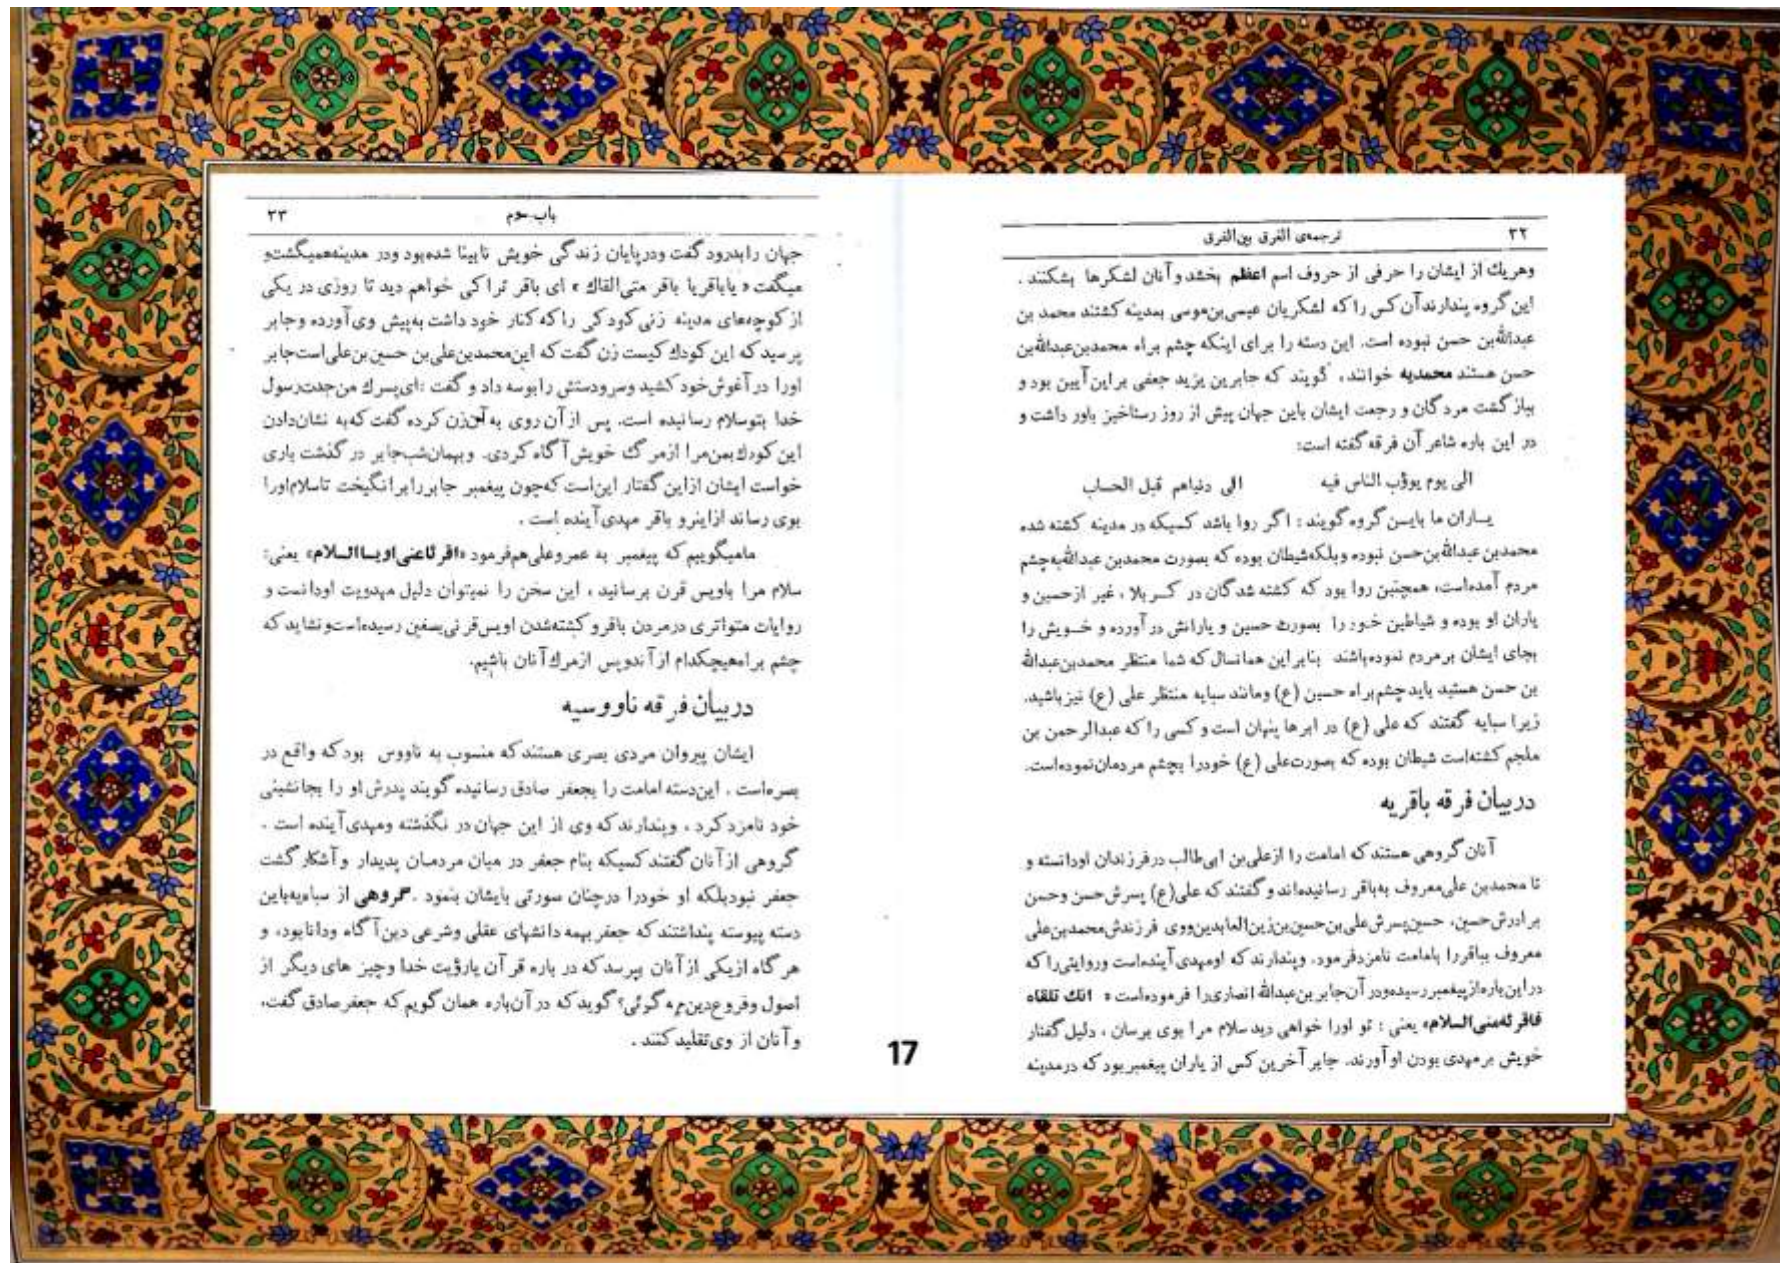 ۳۲ ترجمه‌ی الفرق بین‌الفرق
وهریك از ایشان را حرفی از حروف اسم اعظم بخشد و آنان لشکرها بشکنند .
این گروه پندارند آن کس را که لشکریان عیسی‌بن‌موسی بمدینه کشتند محمد بن
عبدالله‌بن حسن نبوده است. این دسته را برای اینکه چشم براه محمدبن‌عبدالله‌بن
حسن هستند محمدیه خوانند، گویند که جابربن یزید جعفی بر این آیین بود و
بباز گشت مردگان و رجعت ایشان باین جهان پیش از روز رستاخیز باور داشت و
در این باره شاعر آن فرقه گفته است:
الی یوم یوؤب الناس فیه الی دنیاهم قبل الحساب
یـاران ما بایـن گروه گویند : اگر روا باشد کسیکه در مدینه کشته شده
محمدبن عبدالله‌بن‌حسن نبوده وبلکه‌شیطان بوده که بصورت محمدبن عبدالله‌به‌چشم
مردم آمده‌است، همچنین روا بود که کشته شدگان در کـربلا ، غیر ازحسین و
یاران او بوده و شیاطین خـود را بصورت حسین و یارانش در آورده و خـویش را
بجای ایشان برمردم نموده‌باشند بنابر این همانسال که شما منتظر محمدبن‌عبدالله
بن حسن هستید باید چشم‌براه حسین (ع) ومانند سبایه منتظر علی (ع) نیز باشید.
زیرا سبایه گفتند که علی (ع) در ابرها پنهان است و کسی را که عبدالرحمن بن
ملجم کشته‌است شیطان بوده که بصورت‌علی (ع) خودرا بچشم مردمان‌نموده‌است.
در بیان فرقه باقریه
آنان گروهی هستند که امامت را ازعلی‌بن ابی‌طالب درفرزندان اودانسته و
تا محمدبن علی‌معروف به‌باقر رسانیده‌اند و گفتند که علی(ع) پسرش حسن وحسن
برادرش حسین، حسین‌پسرش علی‌بن‌حسین‌بن‌زین‌العابدین‌ووی فرزندش‌محمدبن‌علی
معروف بباقررا بامامت نامزدفرمود. وپندارند که اومهدی‌آینده‌است وروایتی‌را که
در این‌باره‌ازپیغمبر رسیده‌ودر آن‌جابربن‌عبدالله انصاری‌را فرموده‌است « انك تلقاه
فاقرئه‌منی‌السلام» یعنی : تو اورا خواهی دید سلام مرا بوی برسان ، دلیل گفتار
خویش برمهدی بودن او آورند. جابر آخرین کس از یاران پیغمبر بود که درمدینه
باب سوم ۳۳
جهان را بدرود گفت ودرپایان زندگی خویش نابینا شده‌بود ودر مدینه‌همیگشت‌و
میگفت « یاباقر یا باقر متی‌القاك » ای باقر ترا کی خواهم دید تا روزی در یکی
از کوچه‌های مدینه زنی کودکی را که کنار خود داشت به‌پیش وی آورده وجابر
پرسید که این کودك کیست زن گفت که این‌محمدبن‌علی‌بن حسین‌بن‌علی‌است‌جابر
اورا در آغوش‌خود کشید وسرودستش رابوسه داد و گفت :ای‌پسرك من‌جدت‌رسول
خدا بتوسلام رسانیده است. پس از آن روی به آن‌زن کرده گفت که‌به نشان‌دادن
این کودك‌بمن‌مرا ازمرگ خویش آگاه کردی. وبهمان‌شب‌جابر در گذشت باری
خواست ایشان ازاین گفتار این‌است که‌چون پیغمبر جابررا برانگیخت تاسلام‌اورا
بوی رساند ازاینرو باقر مهدی آینده است .
مامیگوییم که پیغمبر به عمر وعلی‌هم‌فرمود «اقرئاعنی‌اویـساالسلام» یعنی:
سلام مرا باویس قرن برسانید ، این سخن را نمیتوان دلیل مهدویت اودانست و
روایات متواتری درمردن باقرو کشته‌شدن اویس‌قرنی‌بصفین رسیده‌است‌ونشاید که
چشم براه‌هیچکدام از آندوپس ازمرك آنان باشیم.
در بیان فرقه ناووسیه
ایشان پیروان مردی بصری هستند که منسوب به ناووس بود که واقع در
بصره‌است . این‌دسته امامت را بجعفر صادق رسانیده گویند پدرش او را بجانشینی
خود نامزد کرد ، وپندارند که وی از این جهان در نگذشته ومهدی آینده است .
گروهی از آنان گفتند کسیکه بنام جعفر در میان مردمـان پدیدار و آشکار گشت
جعفر نبودبلکه او خودرا درچنان صورتی بایشان بنمود . گروهی از سبابیه‌باین
دسته پیوسته پنداشتند که جعفر بهمه دانشهای عقلی وشرعی دین آگاه ودانابود، و
هر گاه ازیکی از آنان بپرسد که در باره قرآن یارؤیت خدا وچیز های دیگر از
اصول وفروع‌دین‌چه گوئی؟ گوید که در آن‌باره همان گویم که جعفرصادق گفت،
و آنان از وی تقلید کنند .
17